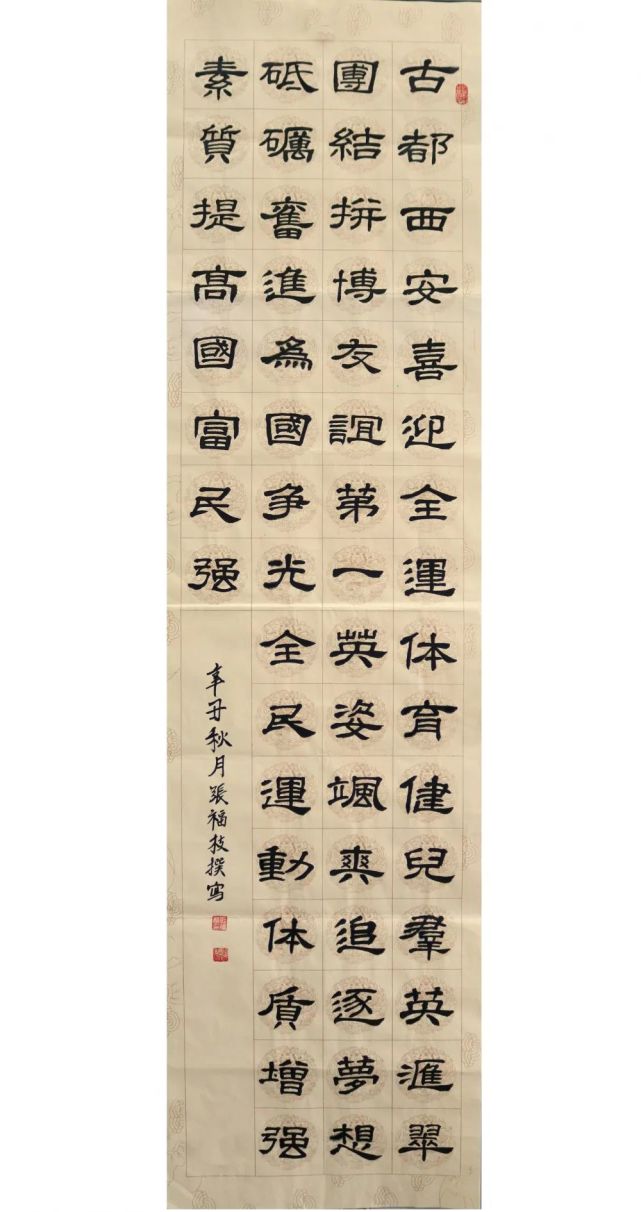 古都西安喜迎全運体育健兒羣英滙翠
團結拚博友誼第一英姿颯爽追逐夢想
砥礪奮進為國争光全民運動体质增强
素質提高國富民强
辛丑秋月張福技撰寫